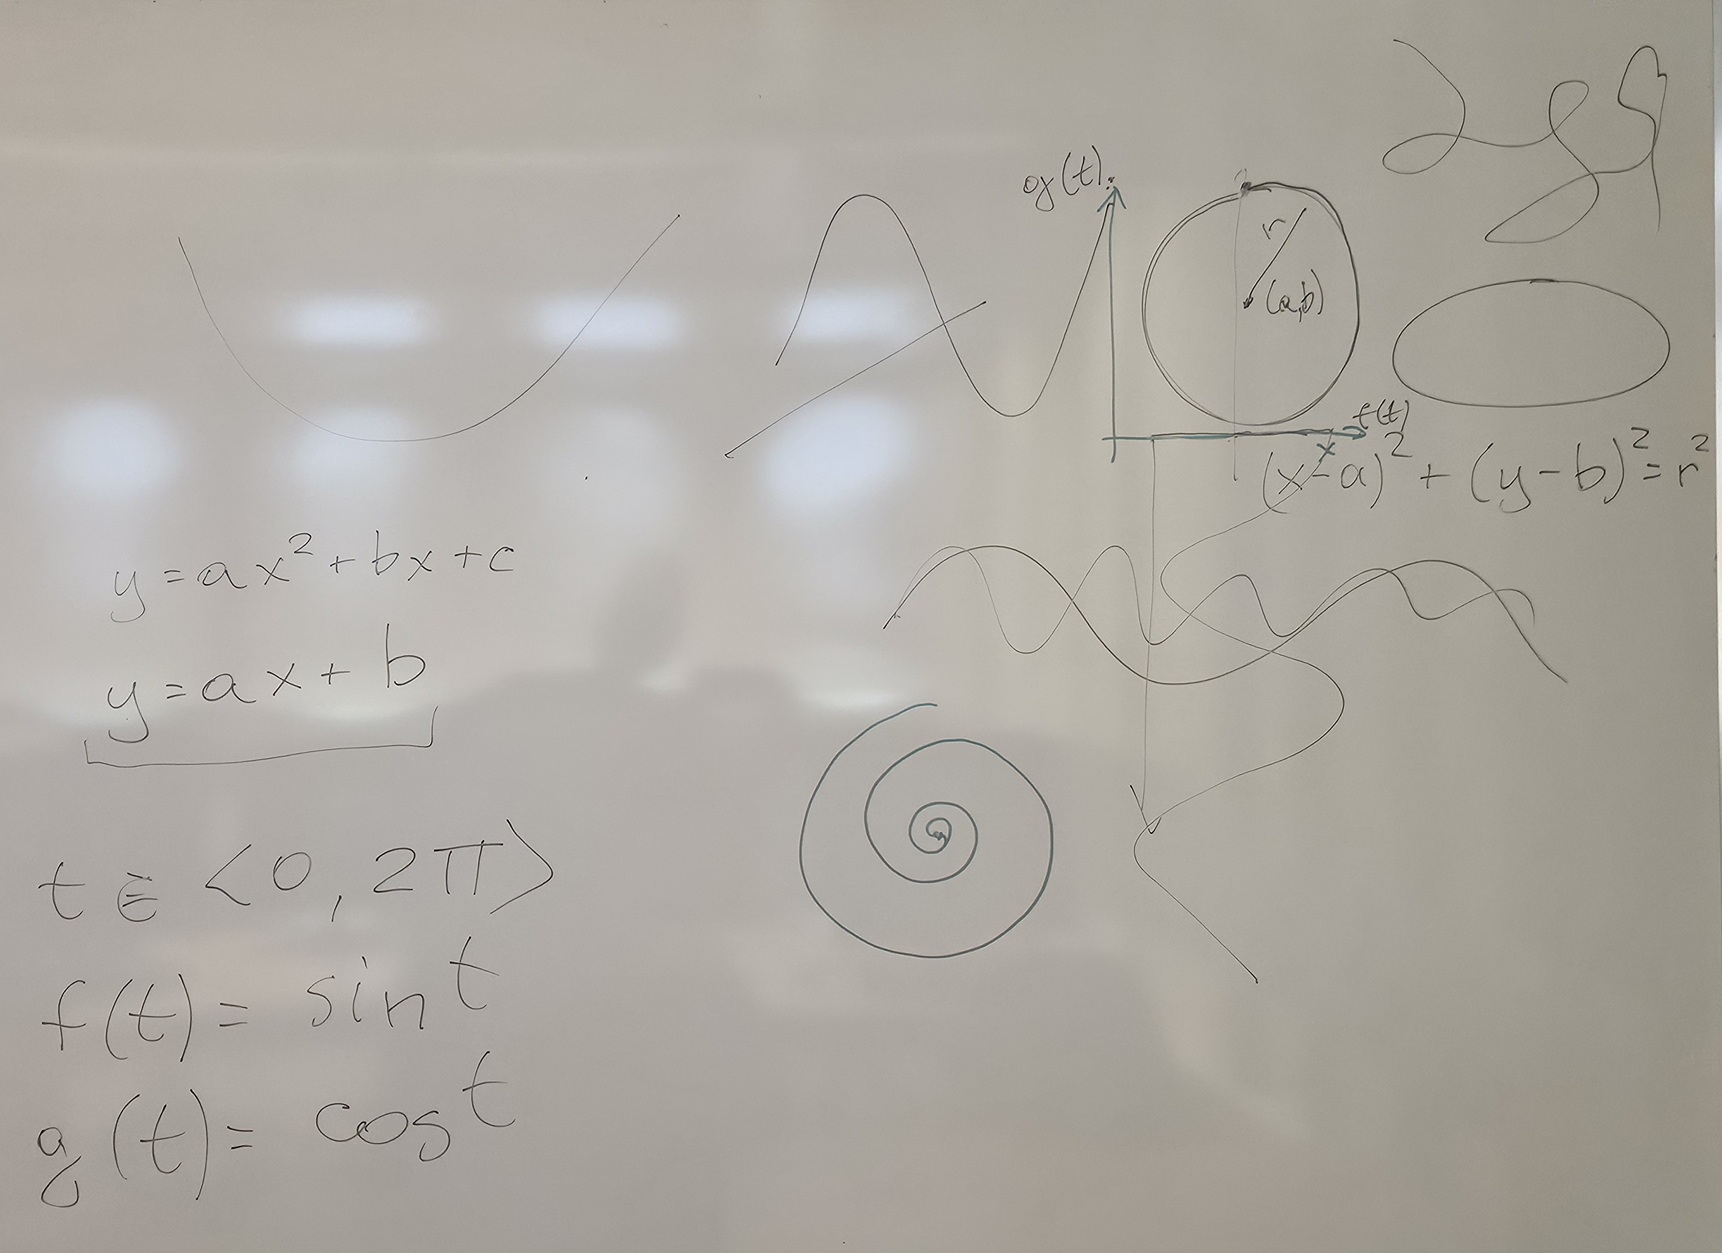 g(t)
r
(a,b)
f(t)
x
(x-a)² + (y-b)² = r²
y = ax² + bx + c
y = ax + b
t ∈ <0, 2π>
f(t) = sin t
g(t) = cos t